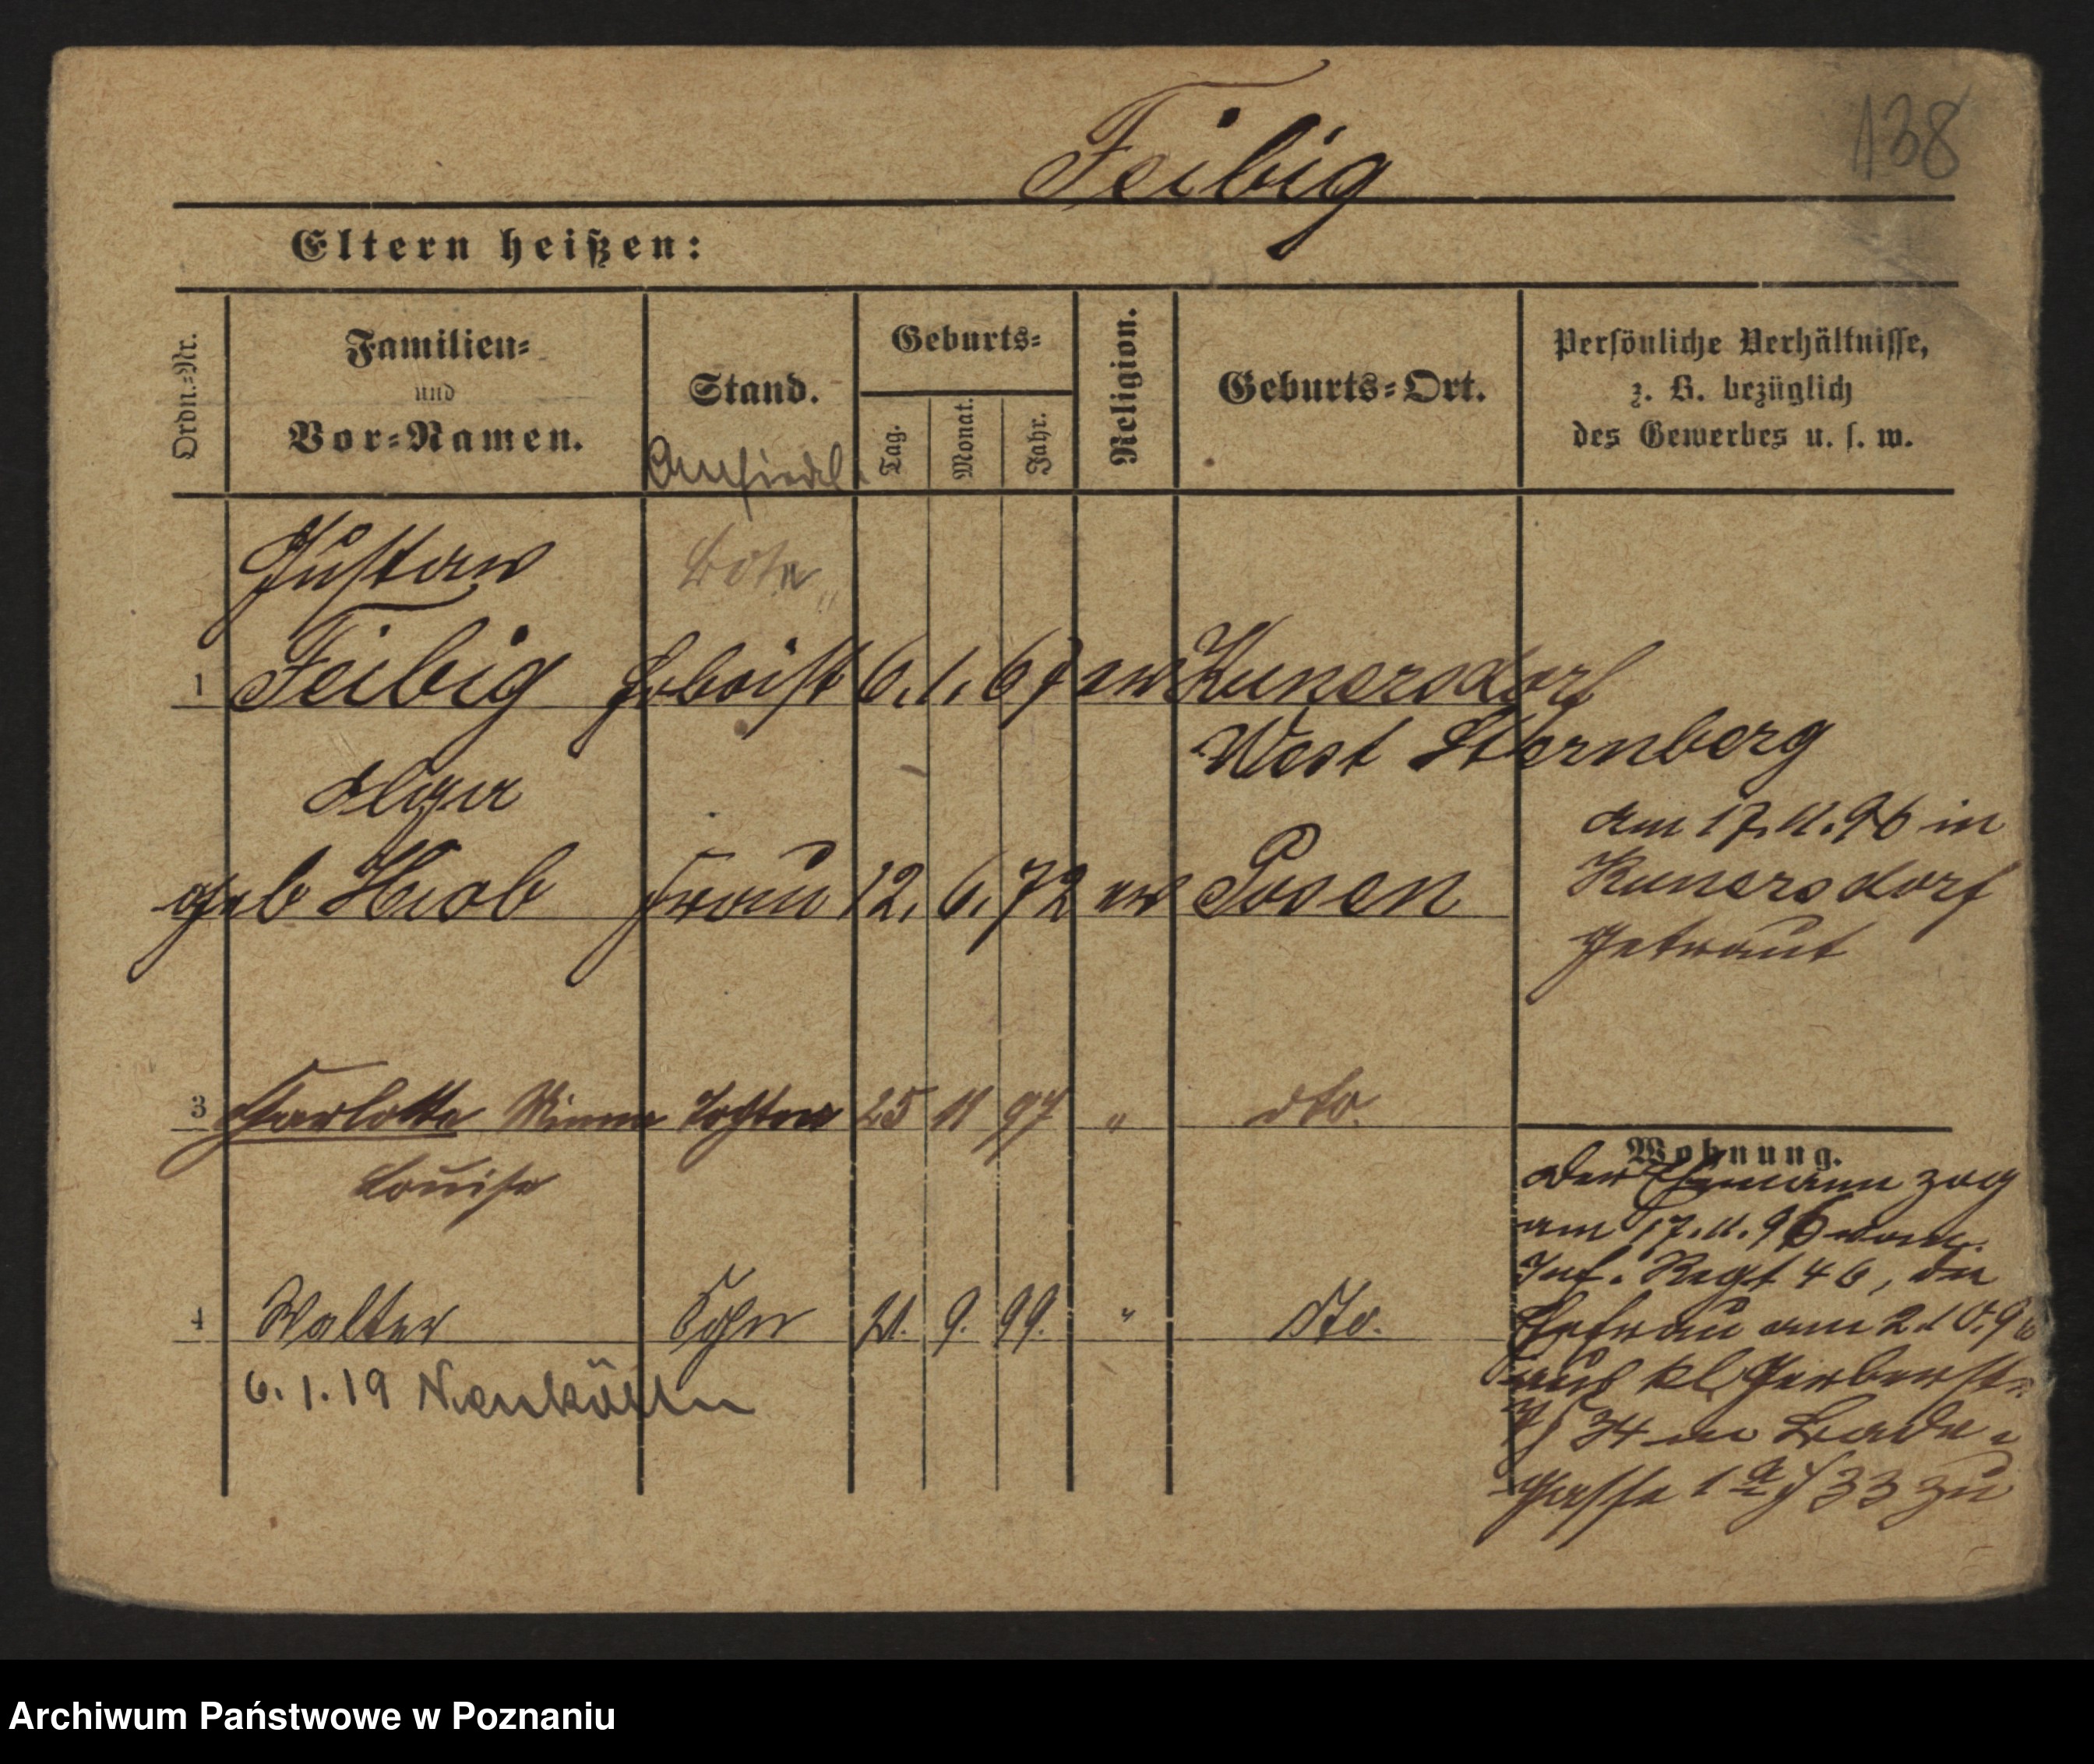 138
Feibig
Eltern heißen:
Ordn.-Nr.
Familien-
und
Vor-Namen.
Stand.
Ansiedl.
Geburts-
Tag.
Monat.
Jahr.
Religion.
Geburts-Ort.
Persönliche Verhältnisse,
z. B. bezüglich
des Gewerbes u. s. w.
Gustav Bote
1 Feibig Hoboist 6. 1. 67 ev Kunersdorf
West Sternberg
Olga
geb Hiob Frau 12. 6. 72 ev Posen
am 17.11.96 in
Kunersdorf
getraut
3 Charlotte Minna Tochter 25 11 97 " dto.
Louise
4 Walter Sohn 21. 9. 99. " dto.
6.1.19 Neukölln
Wohnung.
Der Ehemann zog
am 17.11.96 vom
Inf. Regt 46, die
Ehefrau am 2.10.96
aus kl Gerberstr.
34 in Bade
Gasse 1 a 33 zu
Archiwum Państwowe w Poznaniu